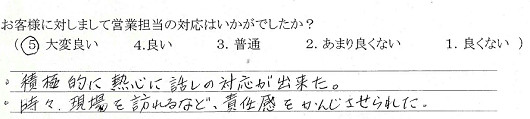 お客様に対しまして営業担当の対応はいかがでしたか？
（ ⑤ 大変良い　4.良い　3. 普通　2. あまり良くない　1. 良くない ）
。積極的に熱心に話しの対応が出来た。
。時々、現場を訪れるなど、責任感をかんじさせられた。